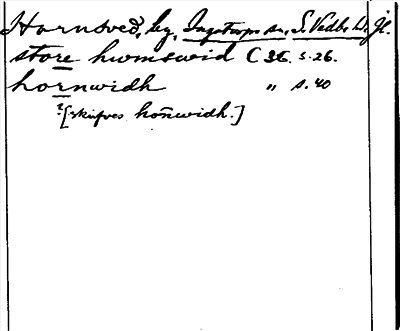 Hornsved, by, Ingatorps sn, S. Vedbo hd, Jl.
store hwmswid C 36. s. 26.
hornwidh " s. 40
?[skrifves hoñwidh.]